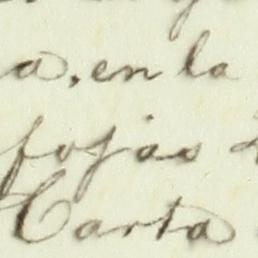 a, en la
fojas
Carta